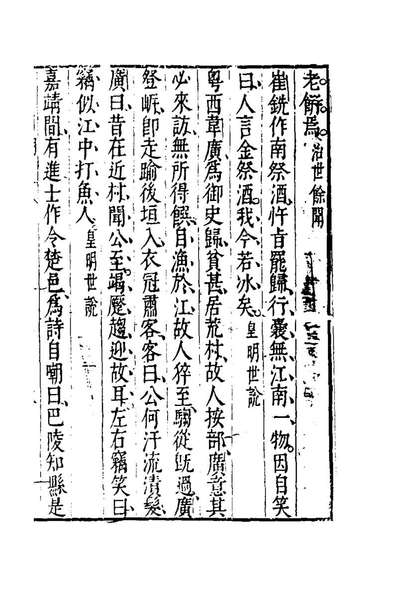 老餅焉治世餘聞
崔銑作南祭酒忤旨罷歸行囊無江南一物因自笑
曰人言金祭酒我今若冰矣皇明世說
粵西韋廣爲御史歸貧甚居荒村故人按部廣意其
必來訪無所得饌自漁於江故人猝至騶從旣過廣
登岍卽走踰後垣入衣冠肅客客曰公何汗流漬髮
廣曰昔在近村聞公至竭蹷趨迎故耳左右竊笑曰
竊似江中打魚人皇明世說
嘉靖間有進士作令楚邑爲詩自嘲曰巴陵知縣是